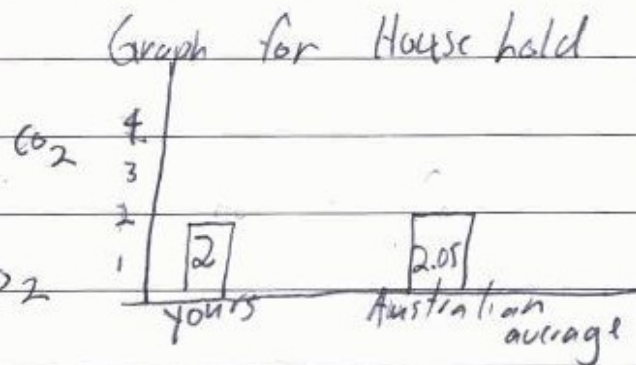 Graph for House hold
4
CO2
3
2
1
2
2.05
2
yours
Australian
average